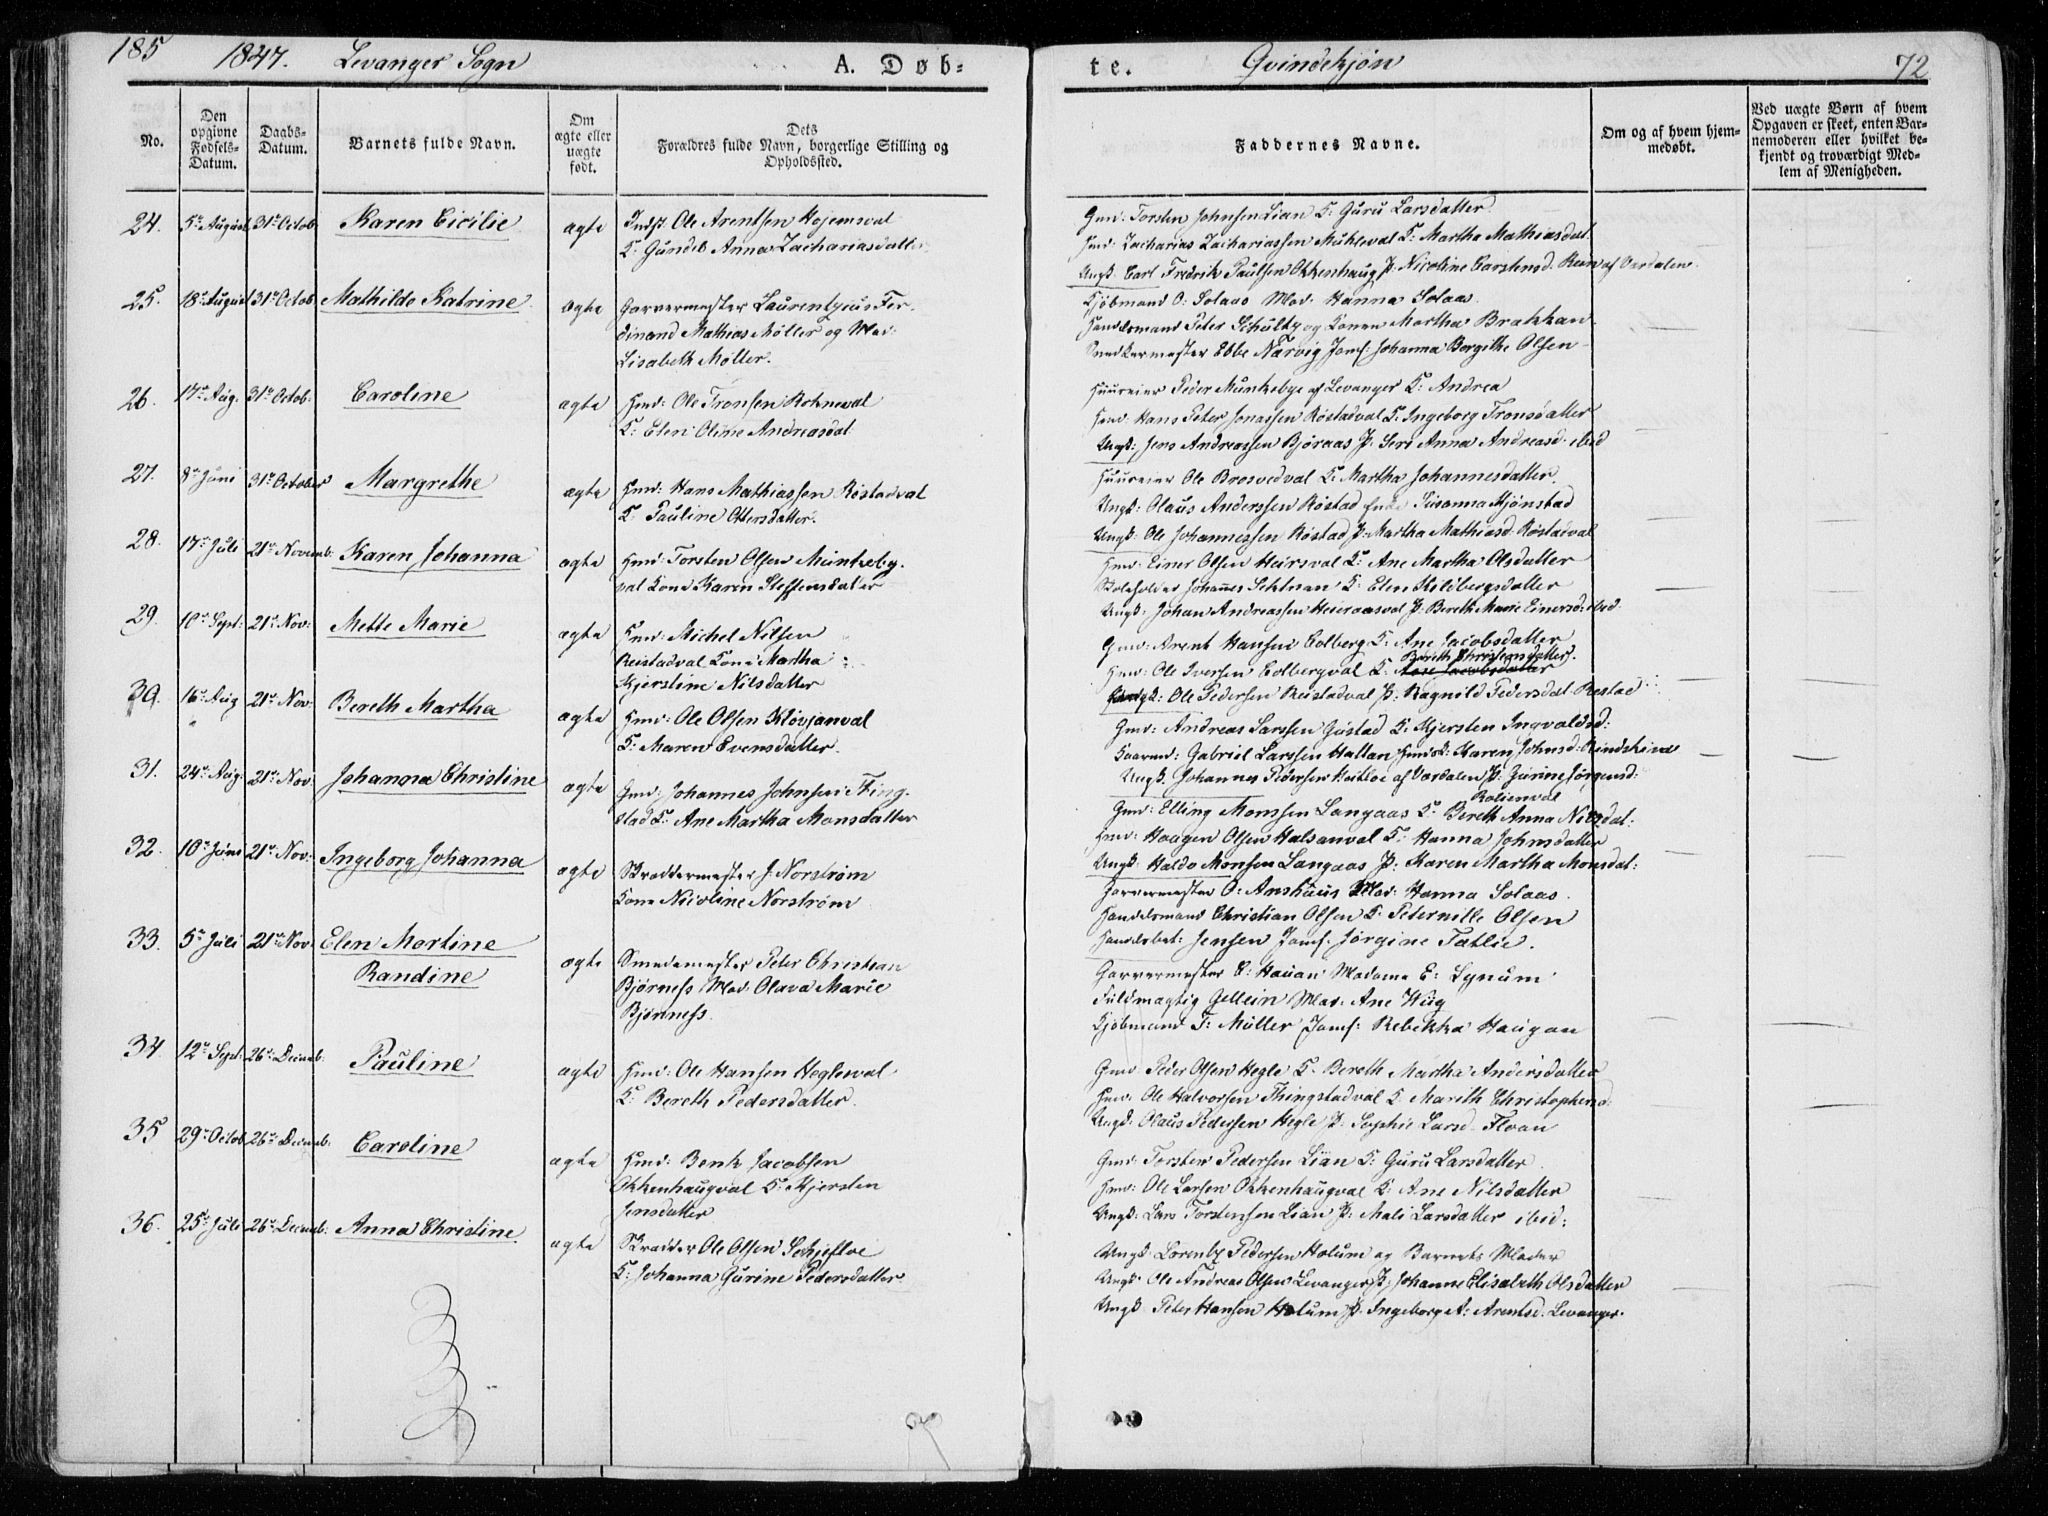 185 1847. Levanger Sogn A. Døb-
te. Qvindekjøn 72
No.
Den opgivne Fødsels-Datum.
Daabs-Datum.
Barnets fulde Navn.
Om ægte eller uægte født.
Dets Forældres fulde Navn, borgerlige Stilling og Opholdssted.
Faddernes Navne.
Om og af hvem hjemmedøbt.
Ved uægte Børn af hvem Opgaven er skeet, enten Barnemoderen eller hvilket bekjendt og troværdigt Medlem af Menigheden.
24. 5te August 31te Octob: Karen Cicilie ægte Indst Ole Arentsen Hojemsval
K: Gunild Anna Zachariasdatter
Gmd: Torsten Johnsen Lian K: Guru Larsdatter
Hmd: Zacharias Zachariassen Mühleval K: Martha Mathiasdat.
Ungk: Carl Fredrik Paulsen Okkenhaug P: Nicoline Carstensd. Reen af Værdalen
25. 18de August 31te Octob Mathilde Katrine ægte Garvermester Laurentzius Fer-
dinand Mathias Møller og Mad:
Lisabeth Møller.
Kjöbmand O: Solaas Mad. Hanna Solaas
Handelsmand Peter Schultz og Konen Martha Brakkan
Snedkermester Ebbe Narvig Jomf: Johanna Bergithe Olsen
26. 17de Aug. 31te Octob. Caroline ægte Hmd: Ole Tronsen Rohneval
K: Elen Oline Andreasdat
Huuseier Peder Munkebye af Levanger K: Andrea
Hmd: Hans Peter Jonassen Røstadval K: Ingeborg Tronsdatter
Ungk: Jens Andreassen Bjøraas P: Seri Anna Andreasd. ibid
27. 8de Juni 31te October Margrethe ægte Hmd: Hans Mathiassen Røstadval
K: Pauline Ottersdatter.
Huuseier Ole Brosvedval K: Martha Johannesdatter.
Ungk: Olaus Anderssen Røstad Susanna Hjønstad
Ungk: Ole Johannessen Røstad P: Martha Mathiasd. Røstadval
28. 17de Juli 21de Novemb: Karen Johanna ægte Hmd: Torsten Olsen Munkeby-
val Kone Karen Steffensdatter
Hmd: Einer Olsen Heirsval K: Ane Martha Olsdatter
Skoleholder Johannes Sehlnan K: Elen Kildbergsdatter
Ungk: Johan Andreassen Heieraasval P: Bereth Marie Einersd: ibid
29. 10de Sept: 21de Nov: Mette Marie ægte Hmd: Michel Nilsen
Reistadval Kone Martha
Kjerstine Nilsdatter
Gmd: Arent Hansen Eolberg K: Ane Jacobsdatter
Bereth Christensdatter.
Hmd: Ole Iversen Eolbergval K: Ane Jacobsdatter
Ungk: Ole Pedersen Reistadval P: Ragnild Pedersdat Restad
30. 16de Aug 21de Nov: Bereth Martha ægte Hmd: Ole Olsen Kløvjanval
K: Maren Evensdatter.
Gmd: Andreas Larssen Gustad K: Kjersten Ingvaldsd:
Gabriel Larssen Hallan Karen Johnsd: Rindsheim
Ungk. Johannes Pedersen af Værdalen P: Gurine Jørgensd:
Rolienval
31. 24de Aug: 21de Nov: Johanna Christine ægte Gmd: Johannes Johnsen Ting-
stad K: Ane Martha Monsdatter
Gmd: Elling Monssen Langaas K: Bereth Anna Nilsdat:
Hmd: Haagen Olsen Halsanval K: Hanna Johnsdatter
Ungk: Haldo Monsen Langaas P: Karen Martha Monsdat:
32. 10de Juni 21de Nov: Ingeborg Johanna ægte Skræddermester J: Norstrøm
Kone Nicoline Norstrøm
Garvermester O: Anshuus Mad: Hanna Solaas.
Handelsmand Christian Olsen K: Peternille Olsen
Handelsbet: Jensen Jomf. Jørgine Tatlie.
33. 5te Juli 21de Nov: Elen Martine
Randine ægte Smedemester Peter Christian
Bjørness Mad: Olava Marie
Bjørness.
Garvermester E: Hauan Madame E: Lynum
Fuldmægtig Gellein Mad: Ane Wiig
Kjöbmand F: Müller Jomf: Rebekka Haugan
34. 12te Sept: 26de Decemb: Pauline ægte Hmd: Ole Hansen Hegleval
K: Bereth Pedersdatter.
Gmd: Peder Olsen Hegle K: Bereth Martha Andersdatter
Hmd: Ole Halvorsen Thingstadval K: Marith Christophersd
Ungk: Olaus Pedersen Hegle P: Sophie Larsd. Floan
35 29de Octob 26de Decemb: Caroline ægte Hmd: Benk Jacobsen
Okkenhaugval K: Kjersten
Jensdatter
Gmd: Torsten Pedersen Lian K: Guru Larsdatter
Hmd: Ole Larsen Okkenhaugval K: Ane Nilsdatter
Ungk: Lars Torstensen Lian P: Mali Larsdatter ibid:
36. 25de Juli 26de Decemb: Anna Christine ægte Skrædder Ole Olsen Schjefloe
K: Johanna Gurine Pedersdatter
Ungk Lorentz Pedersen Holum og Barnets Moder
Ungk: Ole Andreas Olsen Levanger P: Johanne Elisabeth Olsdatter
Ungk: Peter Hansen Holum P: Ingeborg A: Arentsd: Levanger.